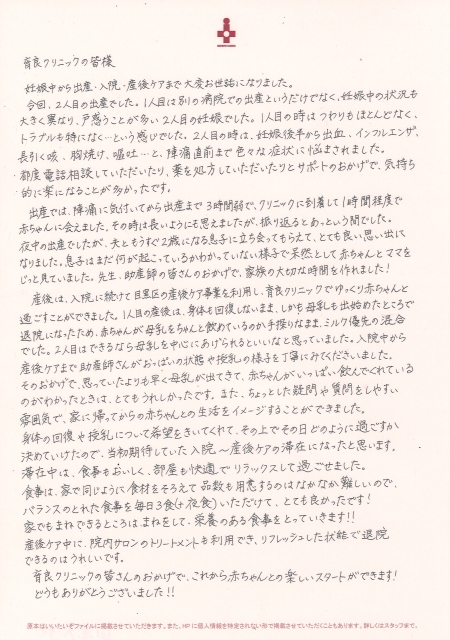 育良クリニックの皆様
妊娠中から出産・入院・産後ケアまで大変お世話になりました。
今回、2人目の出産でした。1人目は別の病院での出産というだけでなく、妊娠中の状況も
大きく異なり、戸惑うことが多い2人目の妊娠でした。1人目の時はつわりもほとんどなく、
トラブルも特になく…という感じでした。2人目の時は、妊娠後半から出血、インフルエンザ、
長引く咳、胸焼け、嘔吐…と、陣痛直前まで色々な症状に悩まされました。
都度電話相談していただいたり、薬を処方していただいたりとサポートのおかげで、気持ち
的に楽になることが多かったです。
出産では、陣痛に気付いてから出産まで3時間弱で、クリニックに到着して1時間程度で
赤ちゃんに会えました。その時は長いようにも思えましたが、振り返るとあっという間でした。
夜中の出産でしたが、夫ともうすぐ2歳になる息子に立ち会ってもらえて、とても良い思い出に
なりました。息子はまだ何が起こっているかわかっていない様子で呆然として赤ちゃんとママを
じっと見ていました。先生、助産師の皆さんのおかげで、家族の大切な時間を作れました!
産後は、入院に続けて目黒区の産後ケア事業を利用し、育良クリニックでゆっくり赤ちゃんと
過ごすことができました。1人目の産後は、身体も回復しないまま、しかも母乳も出始めたところで
退院になったため、赤ちゃんが母乳をちゃんと飲めているのか手探りなまま、ミルク優先の混合
でした。2人目はできるなら母乳を中心にあげられるといいなと思っていました。入院中から
産後ケアまで助産師さんがおっぱいの状態や授乳の様子を丁寧にみてくださいました。
そのおかげで、思っていたよりも早く母乳が出てきて、赤ちゃんがいっぱい飲んでくれている
のがわかったときは、とてもうれしかったです。また、ちょっとした疑問や質問をしやすい
雰囲気で、家に帰ってからの赤ちゃんとの生活をイメージすることができました。
身体の回復や授乳について希望をきいてくれて、その上でその日どのように過ごすか
決めていけたので、当初期待していた入院～産後ケアの滞在になったと思います。
滞在中は、食事もおいしく、部屋も快適でリラックスして過ごせました。
食事は、家で同じように食材をそろえて品数も用意するのはなかなか難しいので、
バランスのとれた食事を毎日3食(+夜食)いただけて、とても良かったです!
家でもまねできるところは、まねをして、栄養のある食事をとっていきます!!
産後ケア中に、院内サロンのトリートメントも利用でき、リフレッシュした状態で退院
できるのはうれしいです。
育良クリニックの皆さんのおかげで、これから赤ちゃんとの楽しいスタートができます!
どうもありがとうございました!!
原本はいいたいぞファイルに掲載させていただきます。また、HPに個人情報を特定されない形で掲載させていただくこともあります。詳しくはスタッフまで。